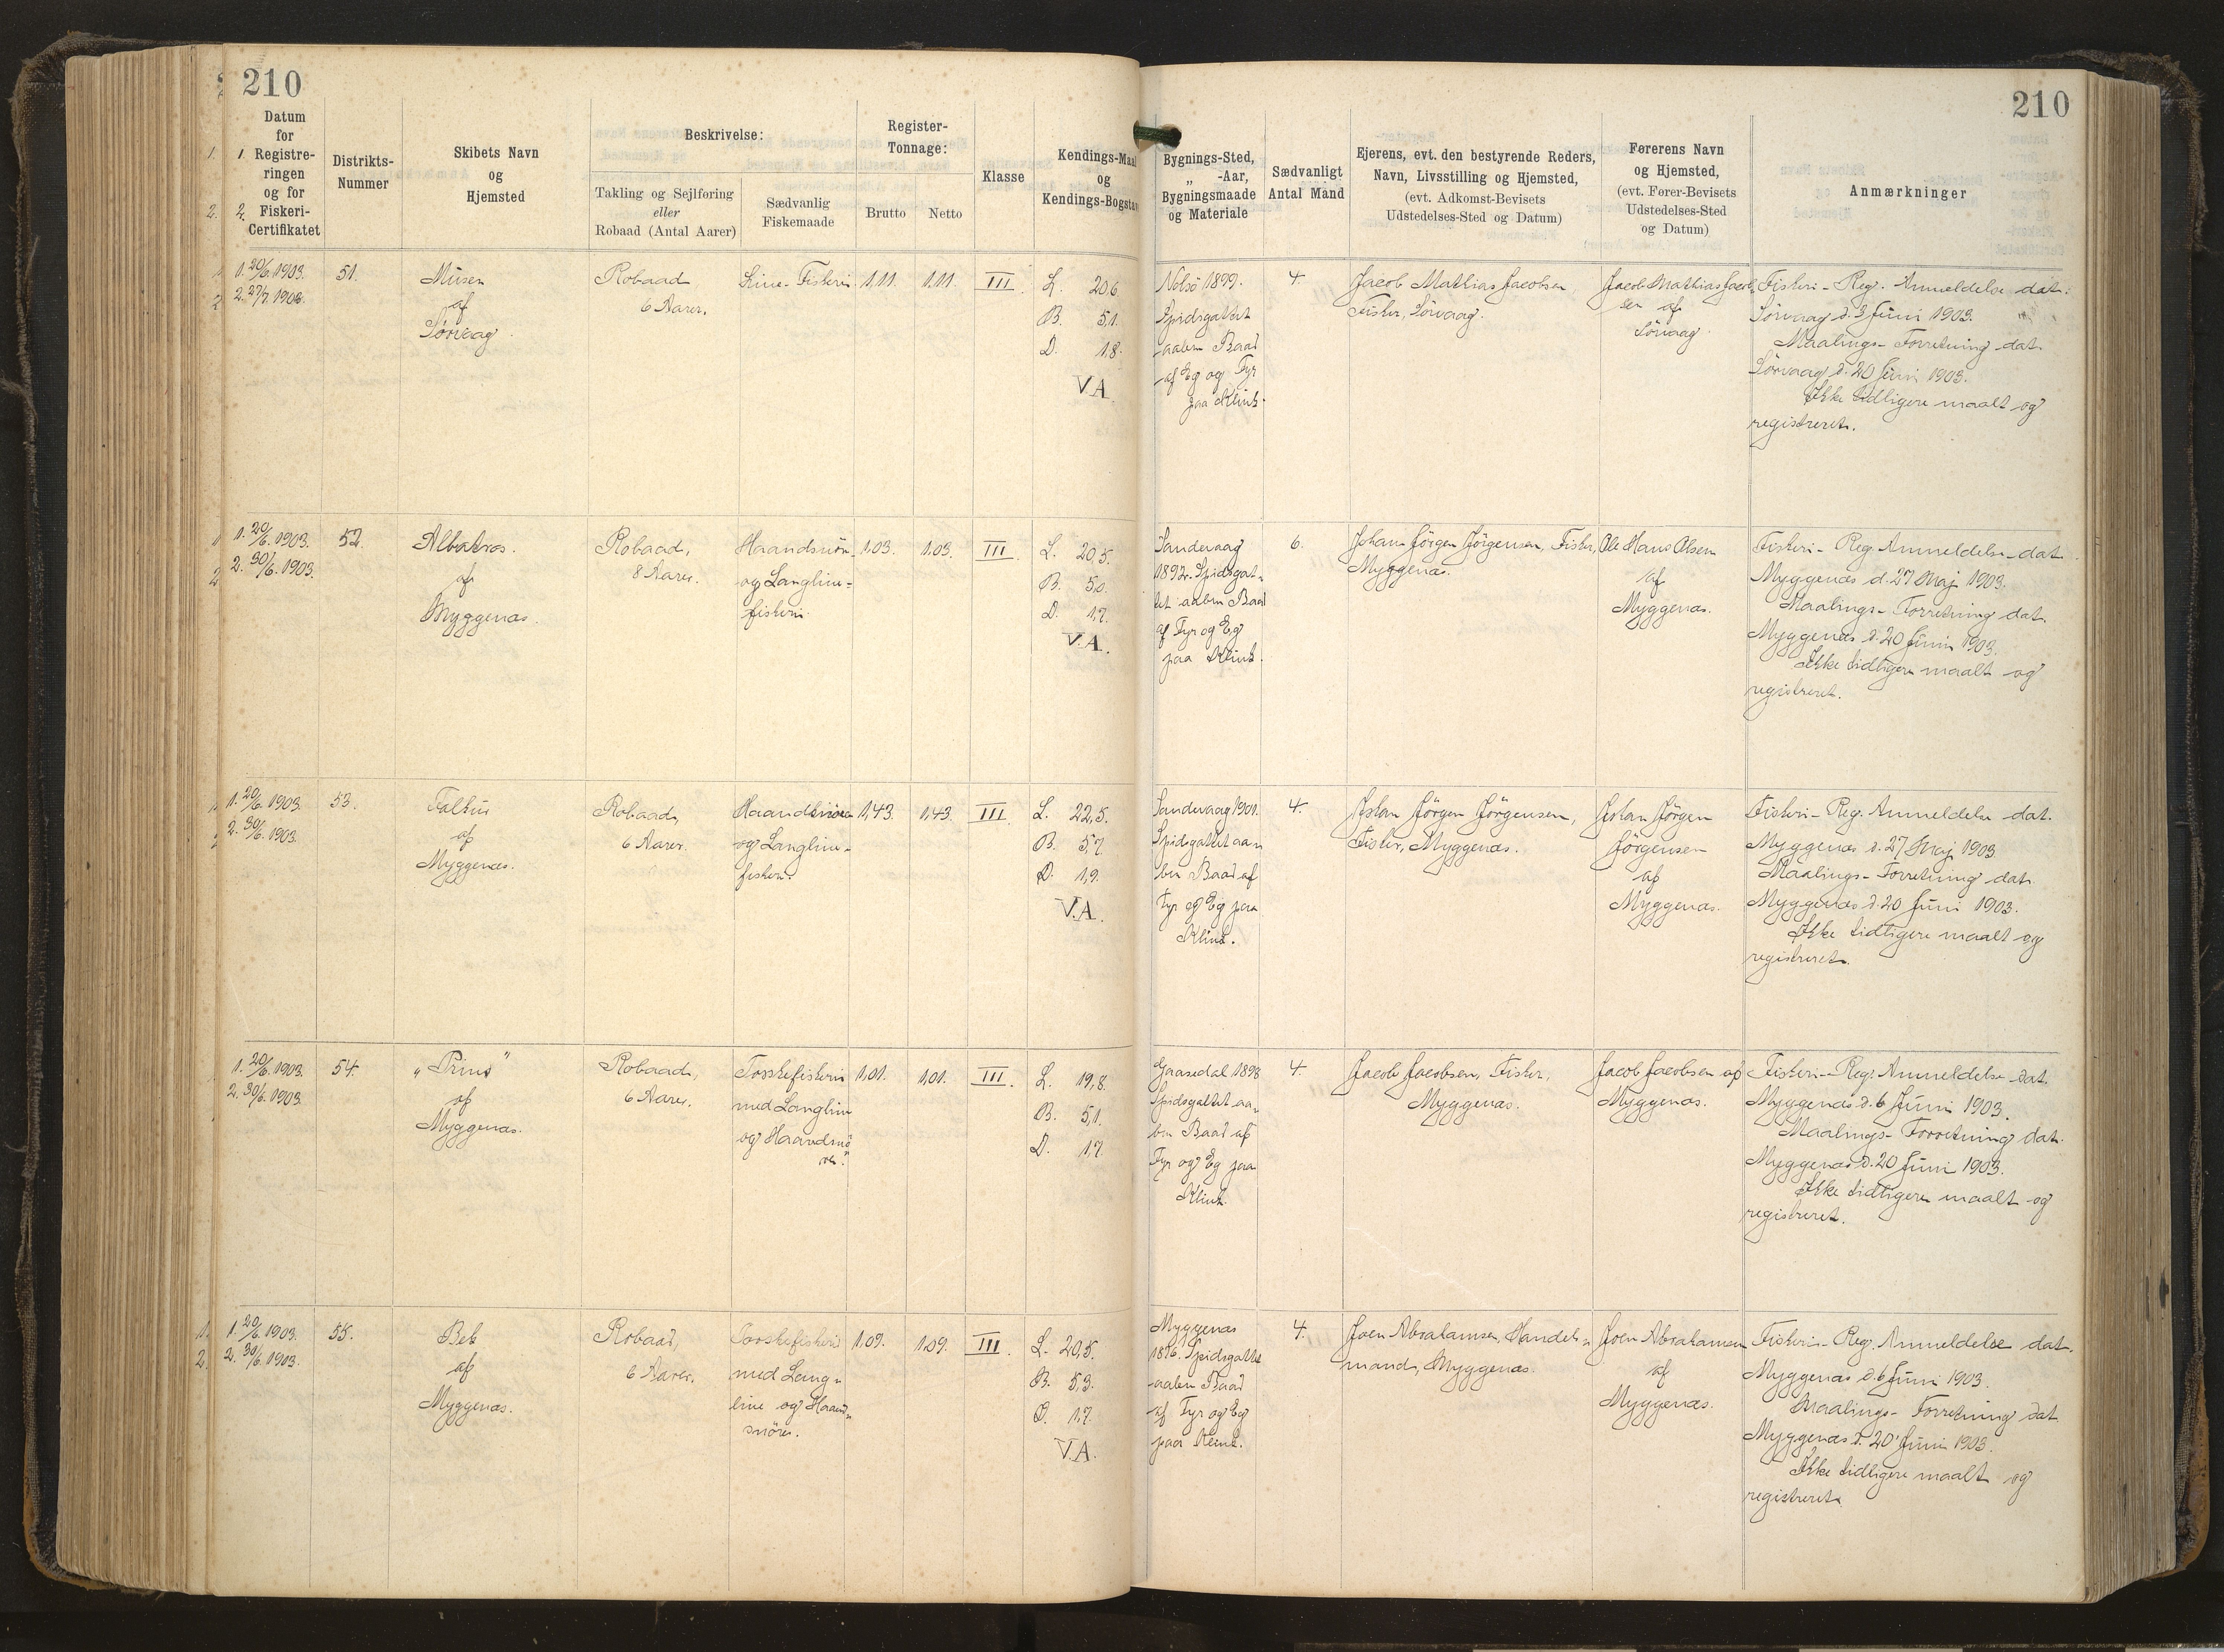 210
210
Datum
for
1. Registre-
ringen
og for
2. Fiskeri-
Certifikatet
Distrikts-
Nummer
Skibets Navn
og
Hjemsted
Beskrivelse:
Takling og Sejlføring
eller
Robaad (Antal Aarer)
Sædvanlig
Fiskemaade
Register-
Tonnage:
Brutto
Netto
Klasse
Kendings-Maal
og
Kendings-Bogstav
Bygnings-Sted,
„ -Aar,
Bygningsmaade
og Materiale
Sædvanligt
Antal Mand
Ejerens, evt. den bestyrende Reders,
Navn, Livsstilling og Hjemsted,
(evt. Adkomst-Bevisets
Udstedelses-Sted og Datum)
Førerens Navn
og Hjemsted,
(evt. Fører-Bevisets
Udstedelses-Sted
og Datum)
Anmærkninger
1. 20/6. 1903.
2. 27/7. 1903.
51.
Musen
af
Sörvaag.
Robaad
6 Aarer.
Line-Fiskeri
1,11.
1,11.
III.
L. 20,6
B. 5,1.
D. 1,8.
V.A.
Nolsö 1899.
Spidsgattet
aaben Baad
af Eg og Fyr
paa Klink.
4.
Jacob Mathias Jacobsen
Fisker, Sörvaag.
Jacob Mathias Jacob-
sen af
Sörvaag.
Fiskeri-Reg. Anmeldelse dat.
Sörvaag d. 3 Juni 1903.
Maalings-Forretning dat.
Sörvaag d. 20 Juni 1903.
Ikke tidligere maalt og
registreret.
1. 20/6. 1903.
2. 30/6. 1903.
52.
Albatros.
af
Myggenæs.
Robaad,
8 Aarer.
Haandsnöre-
og Langline-
fiskeri.
1,03.
1,03.
III.
L. 20,5.
B. 5,0.
D. 1,7.
V.A.
Sandevaag
1892. Spidsgat-
tet aaben Baad
af Fyr og Eg
paa Klink.
6.
Johan Jörgen Jörgensen, Fisker,
Myggenæs.
Ole Hans Olsen
af
Myggenæs.
Fiskeri-Reg. Anmeldelse dat.
Myggenæs d. 27 Maj 1903.
Maalings-Forretning dat.
Myggenæs d. 20 Juni 1903.
Ikke tidligere maalt og
registreret.
1. 20/6. 1903.
2. 30/6. 1903.
53.
Falkur
af
Myggenæs.
Robaad,
6 Aarer.
Haandsnöre
og Langline-
fiskeri.
1,43.
1,43.
III.
L. 22,5.
B. 5,7.
D. 1,9.
V.A.
Sandevaag 1901.
Spidsgattet aa-
ben Baad af
Fyr og Eg paa
Klink.
4.
Johan Jörgen Jörgensen,
Fisker, Myggenæs.
Johan Jörgen
Jörgensen
af
Myggenæs.
Fiskeri-Reg. Anmeldelse dat.
Myggenæs d. 27 Maj 1903
Maalings-Forretning dat.
Myggenæs d. 20 Juni 1903.
Ikke tidligere maalt og
registreret.
1. 20/6. 1903.
2. 30/6. 1903.
54.
„Prins"
af
Myggenæs.
Robaad,
6 Aarer.
Torskefiskeri
med Langline
og Haandsnö-
re.
1,01.
1,01.
III.
L. 19,8.
B. 5,1.
D. 1,7.
Gaasedal 1898
Spidsgattet aa-
ben Baad af
Fyr og Eg paa
Klink.
4.
Jacob Jacobsen, Fisker,
Myggenæs.
Jacob Jacobsen af
Myggenæs.
Fiskeri-Reg. Anmeldelse dat.
Myggenæs d. 6 Juni 1903.
Maalings-Forretning dat.
Myggenæs d. 20 Juni 1903.
Ikke tidligere maalt og
registreret.
1. 20/6. 1903.
2. 30/6. 1903.
55.
af
Myggenæs.
Robaad,
6 Aarer.
Torskefiskeri
med Lang-
line og Haand-
snöre.
1,09.
1,09.
III.
L. 20,5.
B. 5,3.
D. 1,7.
V.A.
Myggenæs
1896. Spidsgattet
aaben Baad
af Fyr og Eg
paa Klink.
4.
Joen Abrahamsen, Handels-
mand, Myggenæs.
Joen Abrahamsen
af
Myggenæs.
Fiskeri-Reg. Anmeldelse dat.
Myggenæs d. 6 Juni 1903.
Maalings-Forretning dat.
Myggenæs d. 20 Juni 1903.
Ikke tidligere maalt og
registreret.